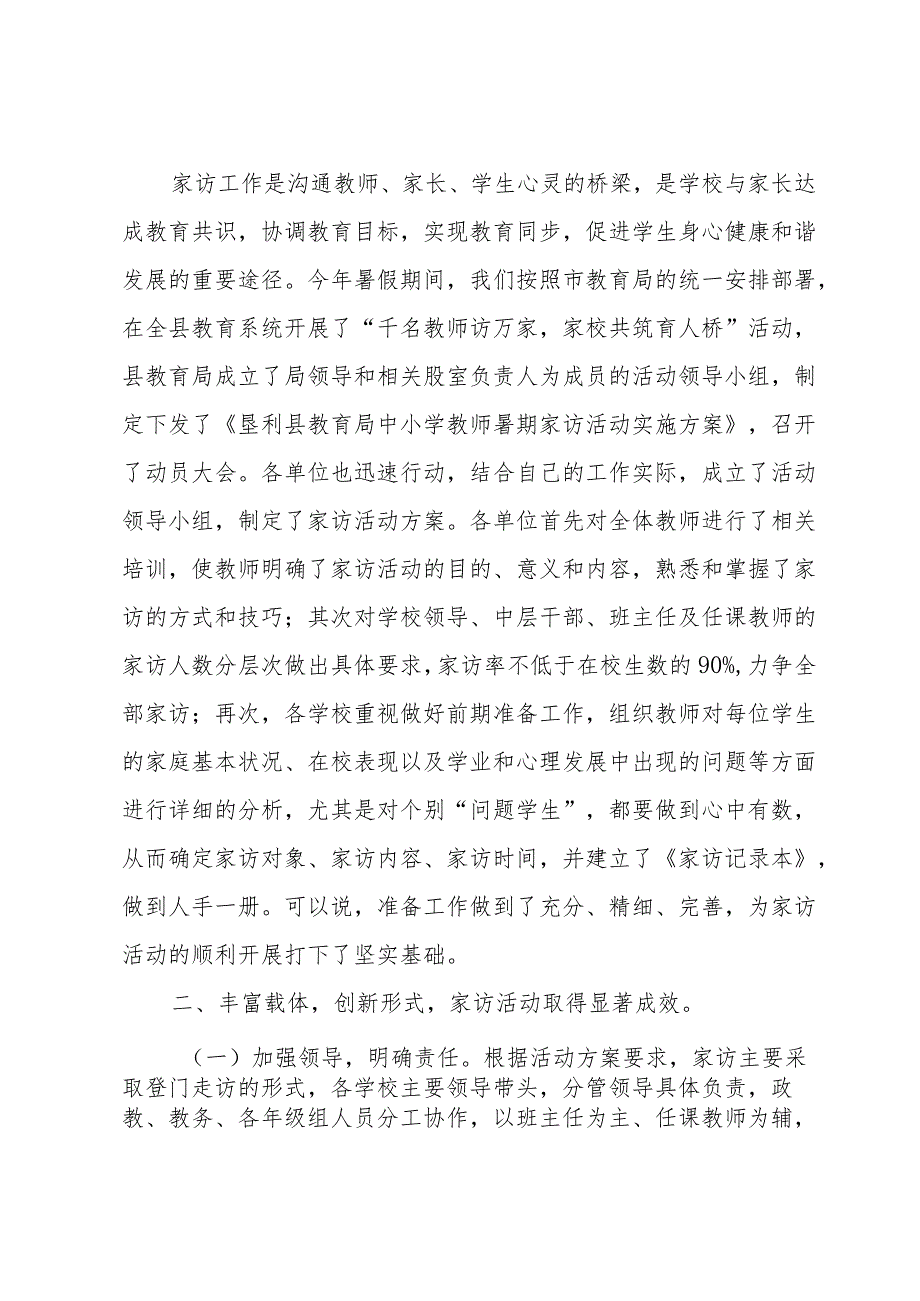 家访工作是沟通教师、家长、学生心灵的桥梁，是学校与家长达
成教育共识，协调教育目标，实现教育同步，促进学生身心健康和谐
发展的重要途径。今年暑假期间，我们按照市教育局的统一安排部署，
在全县教育系统开展了“千名教师访万家，家校共筑育人桥”活动，
县教育局成立了局领导和相关股室负责人为成员的活动领导小组，制
定下发了《垦利县教育局中小学教师暑期家访活动实施方案》，召开
了动员大会。各单位也迅速行动，结合自己的工作实际，成立了活动
领导小组，制定了家访活动方案。各单位首先对全体教师进行了相关
培训，使教师明确了家访活动的目的、意义和内容，熟悉和掌握了家
访的方式和技巧；其次对学校领导、中层干部、班主任及任课教师的
家访人数分层次做出具体要求，家访率不低于在校生数的90%,力争全
部家访；再次，各学校重视做好前期准备工作，组织教师对每位学生
的家庭基本状况、在校表现以及学业和心理发展中出现的问题等方面
进行详细的分析，尤其是对个别“问题学生”，都要做到心中有数，
从而确定家访对象、家访内容、家访时间，并建立了《家访记录本》，
做到人手一册。可以说，准备工作做到了充分、精细、完善，为家访
活动的顺利开展打下了坚实基础。
二、丰富载体，创新形式，家访活动取得显著成效。
（一）加强领导，明确责任。根据活动方案要求，家访主要采
取登门走访的形式，各学校主要领导带头，分管领导具体负责，政
教、教务、各年级组人员分工协作，以班主任为主、任课教师为辅，